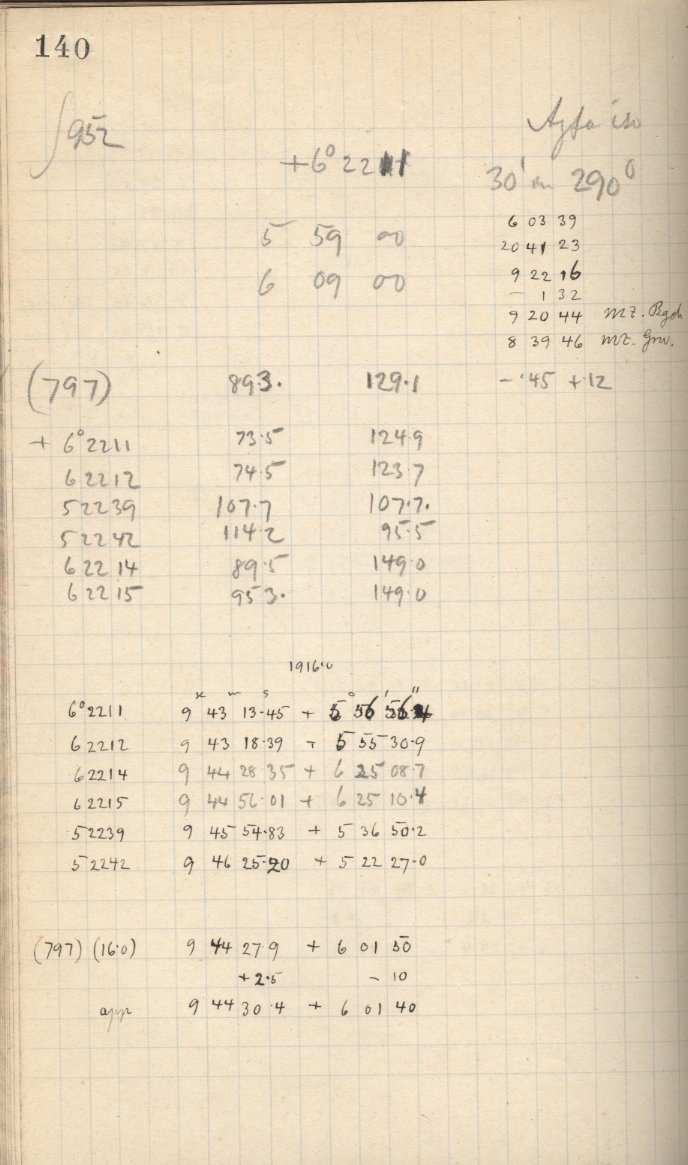 140
952
Agfa iso
+6° 2211
30 m 290°
5 59 00
6 09 00
6 03 39
20 41 23
9 22 16
- 1 32
9 20 44 mz. Bgdf
8 39 46 mz. Grw.
(797) 89 3. 129.1 - .45 + .12
+ 6° 2211 73.5 124.9
6 2212 74.5 123.7
5 2239 107.7 107.7.
5 2242 114.2 95.5
6 2214 89.5 149.0
6 2215 95 3. 149.0
1916.0
h m s ° ' "
6° 2211 9 43 13.45 + 5 56 56.4
6 2212 9 43 18.39 + 5 55 30.9
6 2214 9 44 28.35 + 6 25 08.7
6 2215 9 44 56.01 + 6 25 10.4
5 2239 9 45 54.83 + 5 36 50.2
5 2242 9 46 25.20 + 5 22 27.0
(797) (16.0) 9 44 27.9 + 6 01 50
+2.5 - 10
app 9 44 30.4 + 6 01 40